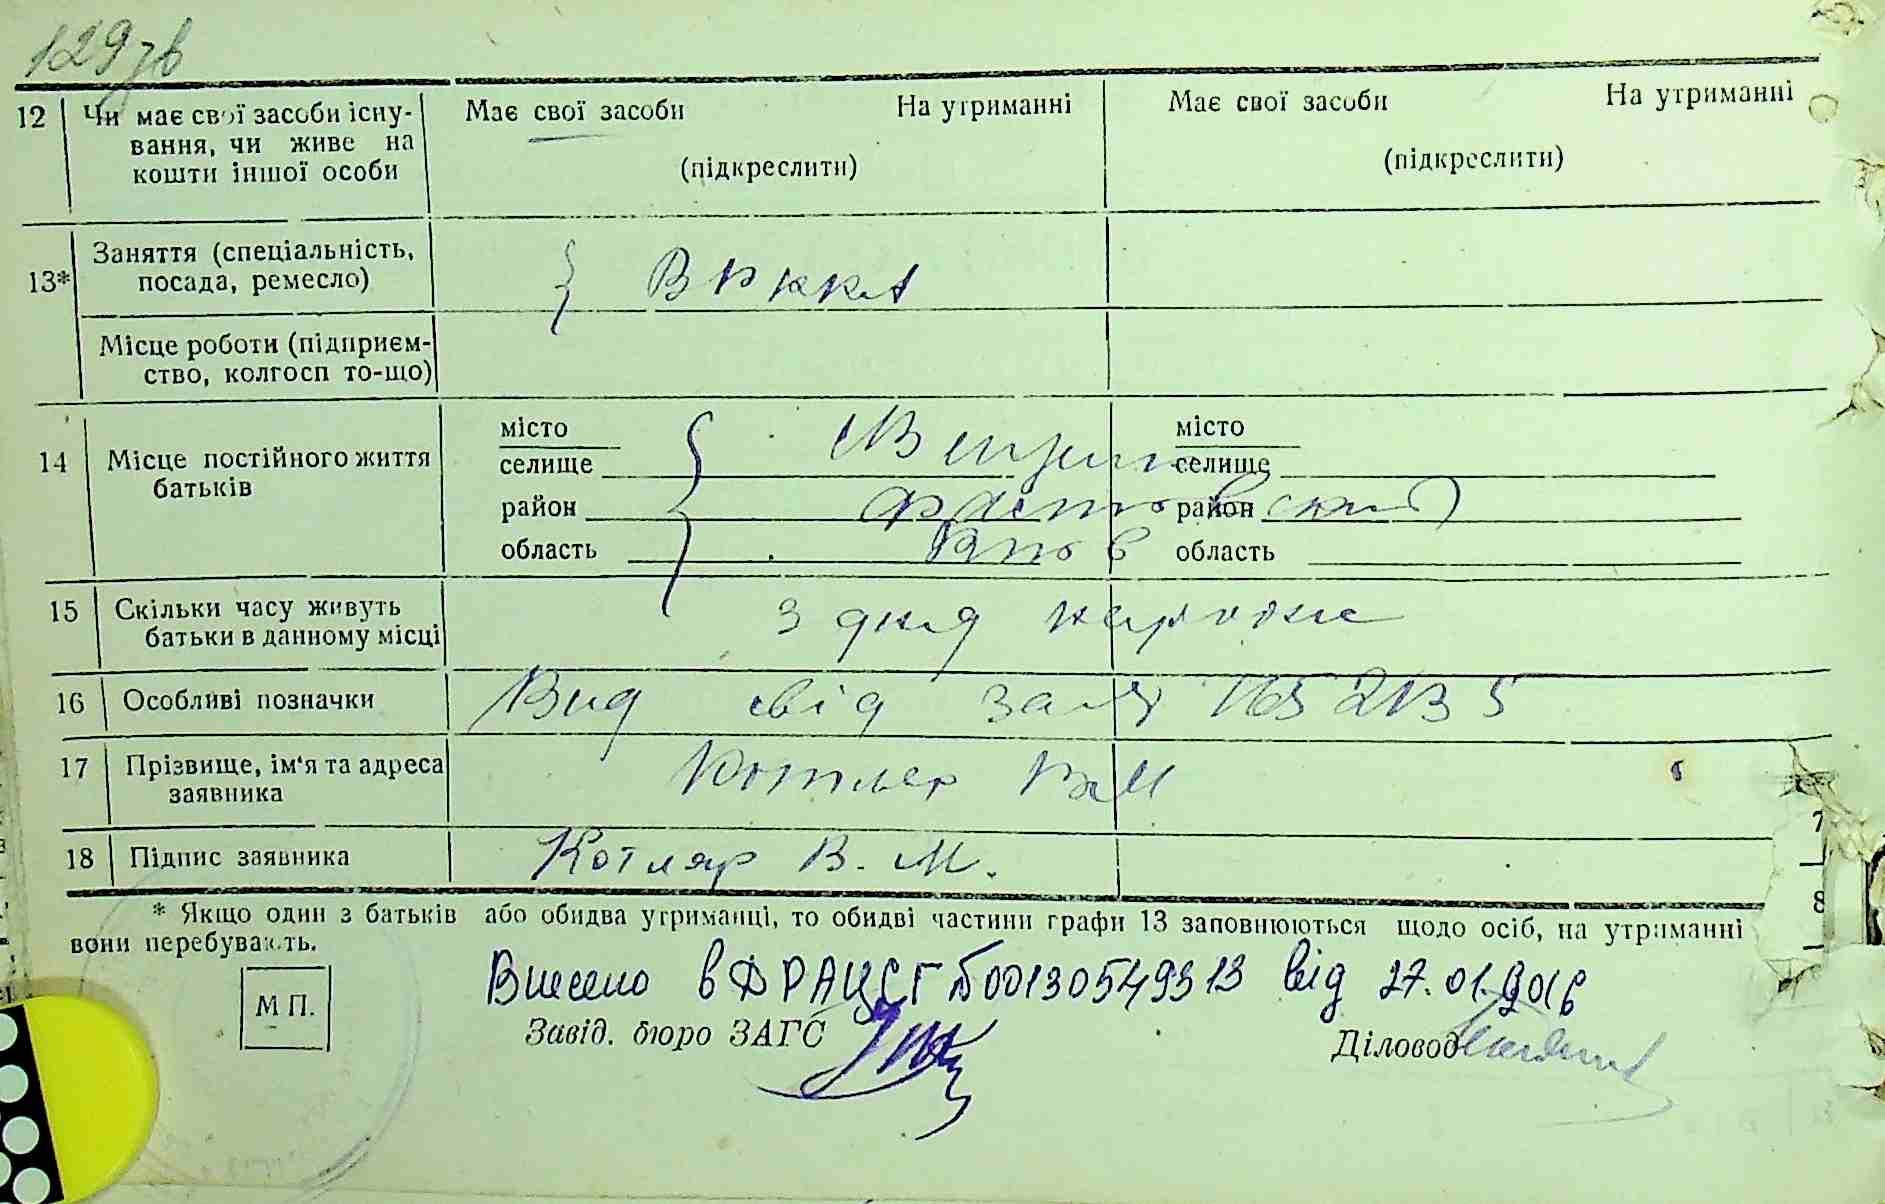 129зв
12 Чи має свої засоби існу- Має свої засоби На утриманні Має свої засоби На утриманні
вання, чи живе на
кошти іншої особи (підкреслити) (підкреслити)
Заняття (спеціальність,
13* посада, ремесло) В РККА
Місце роботи (підприєм-
ство, колгосп то-що)
місто місто
14 Місце постійного життя селище селище
батьків район район
область область
15 Скільки часу живуть
батьки в данному місці З дня
16 Особливі позначки Вид свід
17 Прізвище, ім'я та адреса Котляр В М
заявника
18 Підпис заявника Котляр В. М.
* Якщо один з батьків або обидва утриманці, то обидві частини графи 13 заповнюються щодо осіб, на утриманні
вони перебувають.
7
8
Внесено в ДРАЦСГ 00130549313 від 27.01.2016
М П.
Завід. бюро ЗАГС Діловод